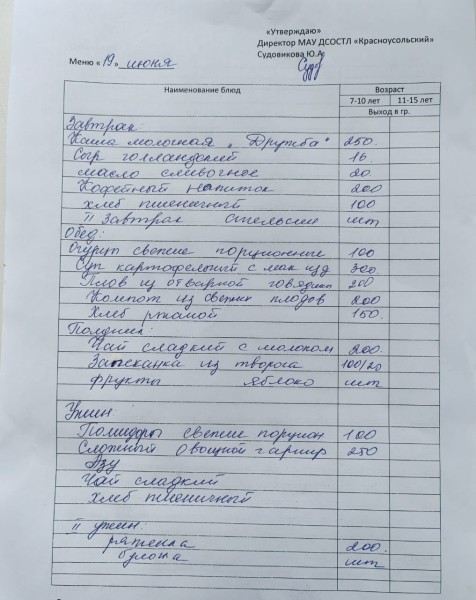 «Утверждаю»
Директор МАУ ДСОСТЛ «Красноусольский»
Судовикова Ю.А.
Меню « 19 » июня
Наименование блюд Возраст
7-10 лет 11-15 лет
Выход в гр.
Завтрак:
Каша молочная „Дружба" 250.
Сыр голландский 16
масло сливочное 20
Кофейный напиток 200
хлеб пшеничный 100
II Завтрак апельсин шт
Обед:
Огурцы свежие порционные 100
Суп картофельный с мак изд 300.
Плов из отварной говядины 200
Компот из свежих плодов 200
Хлеб ржаной 150.
Полдник:
Чай сладкий с молоком 200.
Запеканка из творога 100/20
фрукты яблоко шт
Ужин
Помидоры свежие порцион 100
Сложный овощной гарнир 250
Азу
Чай сладкий
Хлеб пшеничный
II ужин:
ряженка 200.
булочка шт